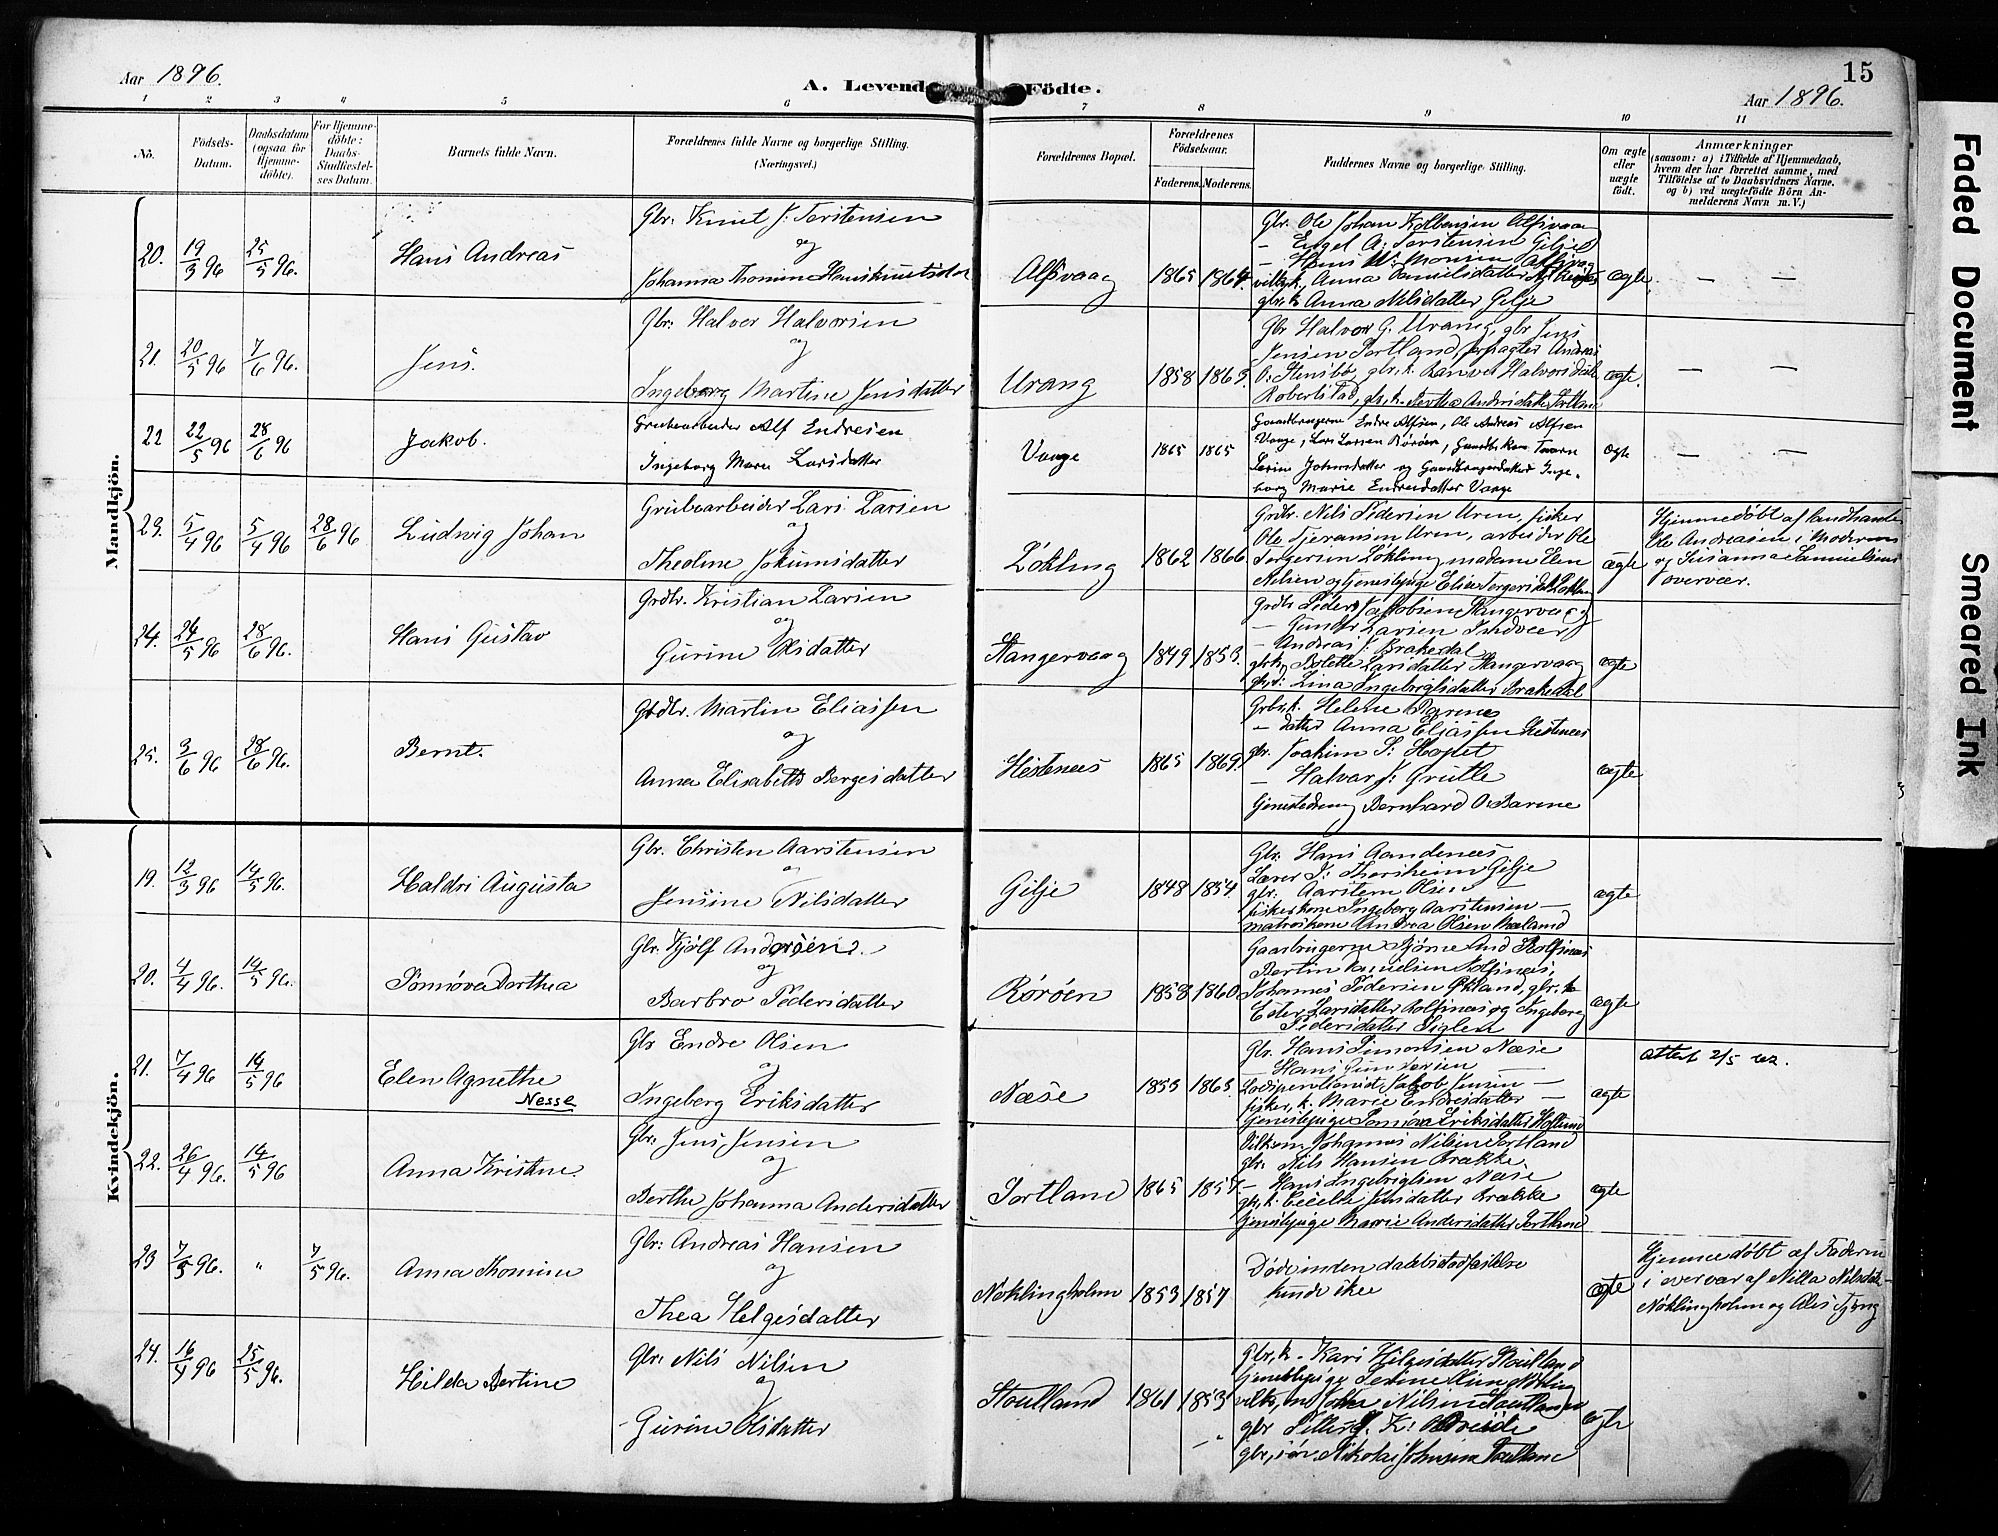 Aar 1896.
A. Levende Födte.
15
Aar 1896.
1 2 3 4 5 6 7 8 9 10 11
No.
Födsels-
Datum.
Daabsdatum
(ogsaa for
Hjemme-
döbte).
For Hjemme-
döbte:
Daabs-
Stadfæstel-
ses Datum.
Barnets fulde Navn.
Forældrenes fulde Navne og borgerlige Stilling.
(Næringsvei.)
Forældrenes Bopæl.
Forældrenes
Födselsaar.
Faderens. Moderens.
Faddernes Navne og borgerlige Stilling.
Om ægte
eller
uægte
födt.
Anmærkninger
(saasom: a) i Tilfælde af Hjemmedaab,
hvem der har forrettet samme, med
Tilföielse af to Daabsvidners Navne,
og b) ved uægtefödte Börn An-
melderens Navn m. V.)
Mandkjön.
20. 19/3 96 25/5 96. Hans Andreas
Gbr. Knut J. Torstensen
og
Johanna Thomine Hansknutsdtr
Alfsvaag 1865 1864.
Gbr. Ole Johan Kolbensen Alfsvaag
– Engel A. Torstensen Gilje
– Hans M. Monsen Alfsvaag
Anna Samuelsdatter
gbr.k. Anna Nilsdatter Gilje
ægte. — —
21. 20/5 96 7/6 96. Jens.
Gbr. Halvor Halvorsen
og
Ingeborg Martine Jensdatter
Urang 1858 1863.
Gbr Halvor G. Urang, gbr Jens
Jensen Tortland, forpagter Andreas
O. Stensbø, gbr.k. Ranvei Halvorsdatter
Robertstad, gbr.k. Berthe Andersdatter Tortland
ægte. — —
22 22/5 96 28/6 96 Jakob.
Grubearbeider Alf Endresen
Ingeborg Marie Larsdatter
Vaage 1865 1865
Gaardbrugerne Endre Alfsen, Ole Andreas Alfsen
Vaage, Lars Larsen Rörøen, Gaardbr.kone
Serine Johnsdatter og Gaardbrugerdatter Inge-
borg Marie Endresdatter Vaage
ægte — —
23. 5/4 96 5/4 96 28/6 96 Ludvig Johan
Grubearbeider Lars Larsen
og
Theoline Jokumsdatter
Løkling 1862 1866.
Grdbr. Nils Pedersen Uren, fisker
Ole Tjeransen Uren, arbeider Ole
Torgersen Løkling, madame Elen
Nilsen og tjenestepige Elise Torgersdatter Løkling
ægte
Hjemmedøbt af landhandler
Ole Andreasen i Moderens
og Susanna Samuelsens
overvær.
24. 24/5 96 28/6 96. Hans Gustav
Grdbr. Kristian Larsen
og
Gurine Olsdatter
Stangervaag 1849 1853.
Grdbr Peder Jakobsen Stangervaag
– Gunder Larsen Indvær
– Andreas J. Brakedal
Bolette Larsdatter Stangervaag
Lina Ingebrigtsdatter Brakedal
ægte
25. 3/6 96 28/6 96. Bernt.
Grdbr. Martin Eliassen
og
Anna Elisabeth Børgesdatter
Hestenæs 1865 1869.
Grbr.k. Helene Barene
– datter Anna Eliassen Hestenæs
gbr. Joakim S. Haftet
– Halvar J. Grutle
Tjenestedreng Bernhard O. Barene
ægte
Kvindekjön.
19. 12/3 96 14/5 96. Haldri Augusta
Gbr. Christen Aarstensen
og
Jensine Nilsdatter
Gilje 1848 1854.
Gbr. Hans Aandenæs
Lærer S. Thorsheim Gilje
gbr. Aarsten Olsen –
fiskerkone Ingeborg Aarstensen –
matroskone Andrea Olsen Mæland
ægte
20. 4/4 96. 14/5 96. Sønnøva Dorthea
Gbr. Kjølf Andersen.
og
Barbro Pedersdatter
Rørøen 1858 1860.
Gaarbrugerne Bjørne And Rolfsnæs
Bertin Danielsen Rolfsnæs,
Johannes Pedersen Økland, gbr. k
Ester Larsdatter Rolfsnæs og Ingeborg
Pedersdatter Siglen
ægte
21. 7/4 96 14/5 96 Elen Agnethe
Nesse
Gbr Endre Olsen
og
Ingeborg Eriksdatter
Næse 1853 1863.
Gbr. Hans Simonsen Næse
– Hans Gundersen –
Lodspensionist Jakob Jensen –
fisker.k. Marie Endresdatter –
tjenestepige Sønnøva Eriksdatter
ægte
Attest 2/5
22. 26/4 96. 14/5 96 Anna Kristine.
Gbr. Jens Jensen
og
Berthe Johanna Andersdatter
Tortland 1865 1857
Johannes Nilsen Tortland
gbr. Nils Hansen Brække.
– Hans Ingebrigtsen Næse
gbr.k. Cecilie Jensdatter Brække
tjenestepige Marie Andersdatter Tortland
ægte
23 7/5 96. " 7/5 96. Anna Thomine
Gbr. Andreas Hansen
og
Thea Helgesdatter
Nøklingholmen 1853 1857
Døde inden daabsstadfæstelse
kunde skee
ægte
Hjemmedøbt af Faderen
i overvær af Nilla Nilsdatter
Nøklingholmen og Ales Fjøng
24. 16/4 96 25/5 96. Hilda Bertine
Gbr. Nils Nilsen
og
– Gurine Olsdatter
Stoutland 1861 1853
– "
Gbr,k. Kari Helgesdatter Stoutland
tjenestepige
Nilsen Stoutland
gbr
gbr,søn Nikolai Johnsen Stoutland
ægte
Faded Document
Smeared Ink